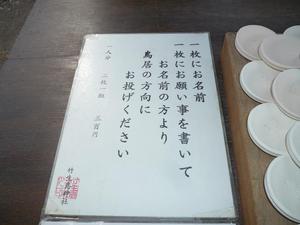 一枚にお名前
一枚にお願い事を書いて
お名前の方より
鳥居の方向に
お投げください
一人分 二枚一組 三百円
竹生島神社